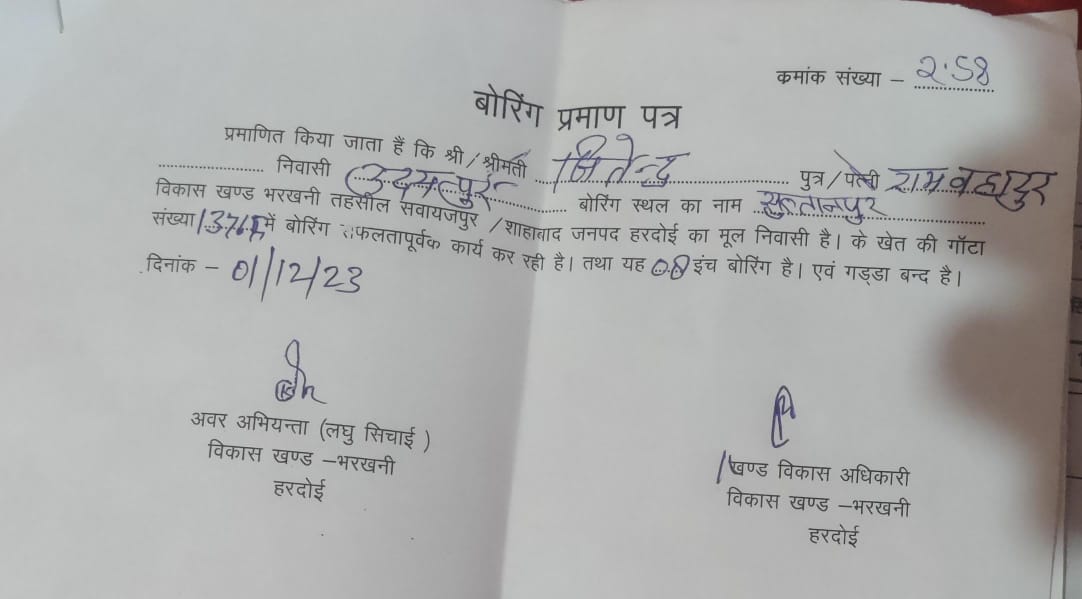 क्रमांक संख्या – 2.58
बोरिंग प्रमाण पत्र
प्रमाणित किया जाता हैं कि श्री / श्रीमती जितेन्द्र पुत्र / पत्नी रामबहादुर
निवासी उदयपुर बोरिंग स्थल का नाम सुल्तानपुर
विकास खण्ड भरखनी तहसील सवायजपुर / शाहाबाद जनपद हरदोई का मूल निवासी है। के खेत की गॉटा
संख्या में बोरिंग सफलतापूर्वक कार्य कर रही है। तथा यह 08 इंच बोरिंग है। एवं गड्डा बन्द है।
दिनांक – 01/12/23
अवर अभियन्ता (लघु सिचाई )
विकास खण्ड –भरखनी
हरदोई
खण्ड विकास अधिकारी
विकास खण्ड –भरखनी
हरदोई